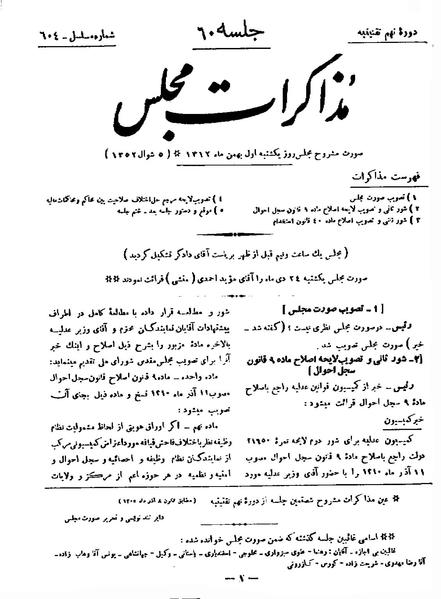 دورهٔ نهم تقنینیه
جلسه ۶۰
شماره مسلسل - ۶۰۴
مذاکرات مجلس
صورت مشروح مجلس روز یکشنبه اول بهمن ماه ۱۳۱۲ * ( ۵ شوال ۱۳۵۲ )
فهرست مذاکرات
۱ ) تصویب صورت مجلس
۲ ) شور ثانی و تصویب لایحه اصلاح ماده ۹ قانون سجل احوال
۳ ) شور ثانی و تصویب ماده ۴۰ قانون استخدام
۴ ) تصویب لایحه مرجع حل اختلاف صلاحیت بین محاکم و محاکمات مالیه
۵ ) موقع و دستور جلسه بعد - ختم جلسه
( مجلس یك ساعت ونیم قبل از ظهر بریاست آقای دادگر تشکیل گردید )
صورت مجلس یکشنبه ۲۴ دی ماه را آقای مؤید احمدی ( منشی ) قرائت نمودند
[ ۱ - تصویب صورت مجلس ]
رئیس - در صورت مجلس نظری نیست ؛ ( گفته شد -
خیر ) صورت مجلس تصویب شد.
[ ۲ - شور ثانی و تصویب لایحه اصلاح ماده ۹ قانون
سجل احوال ]
رئیس - خبر از کمیسیون قوانین عدلیه راجع باصلاح
مادهٔ ۹ سجل احوال قرائت میشود :
خبر کمیسیون
کمیسیون عدلیه برای شور دوم لایحه نمرهٔ ۲۱۹۵۰
دولت راجع باصلاح مادهٔ ۹ قانون سجل احوال مصوب
۱۱ آذر ماه ۱۳۱۰ را با حضور آقای وزیر عدلیه مورد
شور و مطالعه قرار داده با مطالعهٔ کامل در اطراف
پیشنهادات آقایان نمایندگان محترم و آقای وزیر عدلیه
بالاخره مادهٔ مزبور را بشرح ذیل اصلاح و اینك خبر
آنرا برای تصویب مجلس مقدس شورای ملی تقدیم مینماید:
ماده واحده - مادهٔ ۹ قانون اصلاح قانون سجل احوال
مصوب ۱۱ آذر ماه ۱۳۱۰ فسخ و ماده ذیل بجای آن
تصویب میشود :
ماده نهم - اگر اوراق هویتی از لحاظ مشمولیت نظام
وظیفه نظر باختلاف فاحش قیافه مورد اعتراض کمیسیونی مرکب
از نمایندگان نظام وظیفه و احصائیه و سجل احوال و
امنیه و نظمیه در هر حوزه اعم از مرکز و ولایات
* عین مذاکرات مشروح شصتمین جلسه از دورهٔ نهم تقنینیه
( مطابق قانون ۸ آذر ماه ۱۳۰۵ )
دایره تند نویسی و تحریر صورت مجلس
* اسامی غائبین جلسه گذشته که ضمن صورت مجلس خوانده شده :
غائبین بی اجازه - آقایان : رهنما - علوی سبزواری - مخلوجی - اسفندیاری - باستانی - وکیل - جهانشاهی - یونس آقا وهاب زاده -
آقا رضا مهدوی - شریعت زاده - کورس - کازرونی
- ۱ -